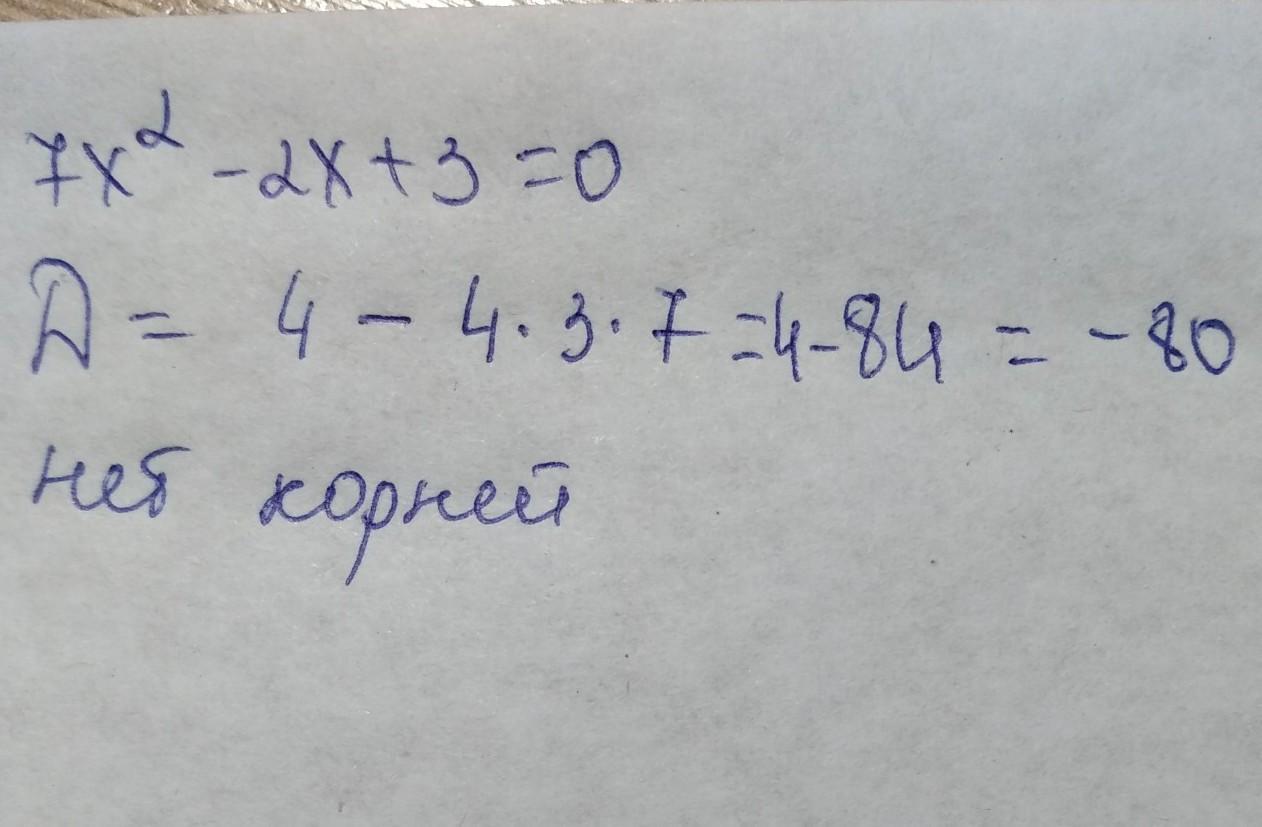 7x² -2x+3=0
D = 4 - 4·3·7 =4-84 = -80
нет корней